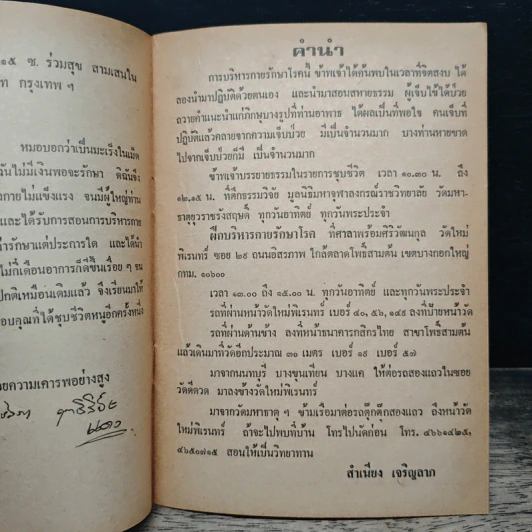 ๑๕ ซ. ร่วมสุข สามเสนใน
กรุงเทพ ฯ
หมอบอกว่าเป็นมะเร็งในเม็ด
ฉันไม่มีเงินพอจะรักษา ดิฉันจึง
กายไม่แข็งแรง จนมีผู้ใหญ่ท่าน
และได้รับการสอนการบริหาร
รักษาแต่ประการใด และได้นำ
ไม่กี่เดือนอาการก็ดีขึ้นเรื่อย ๆ จน
ปกติเหมือนเดิมแล้ว จึงเรียนมาให้
อบคุณที่ได้ชุบชีวิตหนูอีกครั้งหนึ่ง
วยความเคารพอย่างสูง
คำนำ
การบริหารกายรักษาโรคนี้ ข้าพเจ้าได้ค้นพบในเวลาที่จิตสงบ ได้
ลองนำมาปฏิบัติด้วยตนเอง และนำมาสอนสหายธรรม ผู้เจ็บไข้ได้ป่วย
ถวายคำแนะนำแก่ภิกษุบางรูปที่ท่านอาพาธ ได้ผลเป็นที่พอใจ คนเจ็บที่
ปฏิบัติแล้วคลายจากความเจ็บป่วย มีเป็นจำนวนมาก บางท่านหายขาด
ไปจากเจ็บป่วยก็มี เป็นจำนวนมาก
ข้าพเจ้าบรรยายธรรมในรายการชุบชีวิต เวลา ๑๐.๓๐ น. ถึง
๑๒.๑๕ น. ที่ตึกธรรมวิจัย มูลนิธิมหาจุฬาลงกรณ์ราชวิทยาลัย วัดมหา-
ธาตุยุวราชรังสฤษดิ์ ทุกวันอาทิตย์ ทุกวันพระประจำ
ฝึกบริหารกายรักษาโรค ที่ศาลาพร้อมศิริวัฒนกุล วัดใหม่
พิเรนทร์ ซอย ๒๙ ถนนอิสรภาพ ใกล้ตลาดโพธิ์สามต้น เขตบางกอกใหญ่
กทม. ๑๐๖๐๐
เวลา ๑๓.๐๐ ถึง ๑๕.๐๐ น. ทุกวันอาทิตย์ และทุกวันพระประจำ
รถที่ผ่านหน้าวัดใหม่พิเรนทร์ เบอร์ ๔๐, ๕๖, ๑๔๙ ลงที่ป้ายหน้าวัด
รถที่ผ่านด้านข้าง ลงที่หน้าธนาคารกสิกรไทย สาขาโพธิ์สามต้น
แล้วเดินมาที่วัดอีกประมาณ ๓๐ เมตร เบอร์ ๑๙ เบอร์ ๕๗
มาจากนนทบุรี บางขุนเทียน บางแค ให้ต่อรถสองแถวในซอย
วัดดีดวด มาลงข้างวัดใหม่พิเรนทร์
มาจากวัดมหาธาตุ ๆ ข้ามเรือมาต่อรถตุ๊กตุ๊กสองแถว ถึงหน้าวัด
ใหม่พิเรนทร์ ถ้าจะไปพบที่บ้าน โทรไปนัดก่อน โทร. ๔๖๖๑๔๒๕,
๔๖๕๐๗๑๕ สอนให้เป็นวิทยาทาน
สำเนียง เจริญลาภ